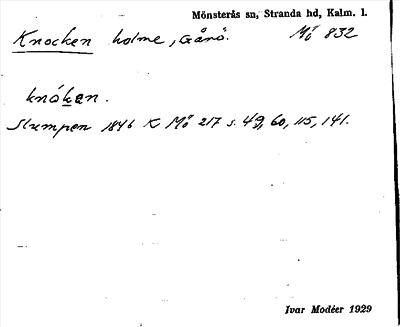 Mönsterås sn, Stranda hd, Kalm. l.
Knocken holme, Gånö. Mö 832
knókan.
Slumpen 1846 K Mö 217 s. 49, 60, 115, 141.
Ivar Modéer 1929